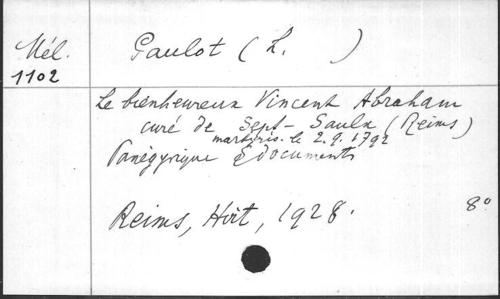 Mél.
1102
Paulot (L. )
Le bienheureux Vincent Abraham
curé de Sept-Saulx (Reims)
martyris. le 2.9.1792
Panégyrique & documents
Reims, Hirt, 1928.
8º